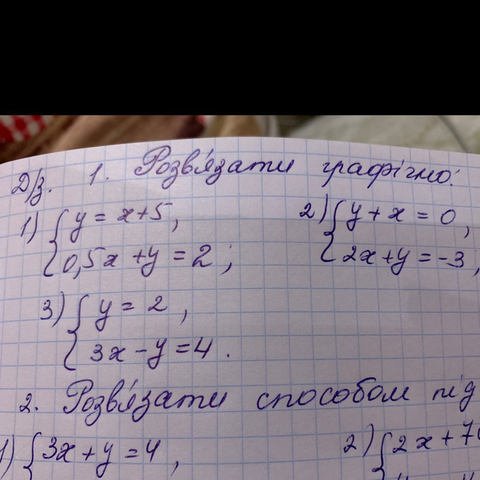 Д/з. 1. Розв'язати графічно:
1) { y = x+5, 2) { y + x = 0,
0,5x + y = 2; 2x + y = -3,
3) { y = 2,
3x - y = 4.
2. Розв'язати способом під
1) { 3x + y = 4, 2) { 2x + 7